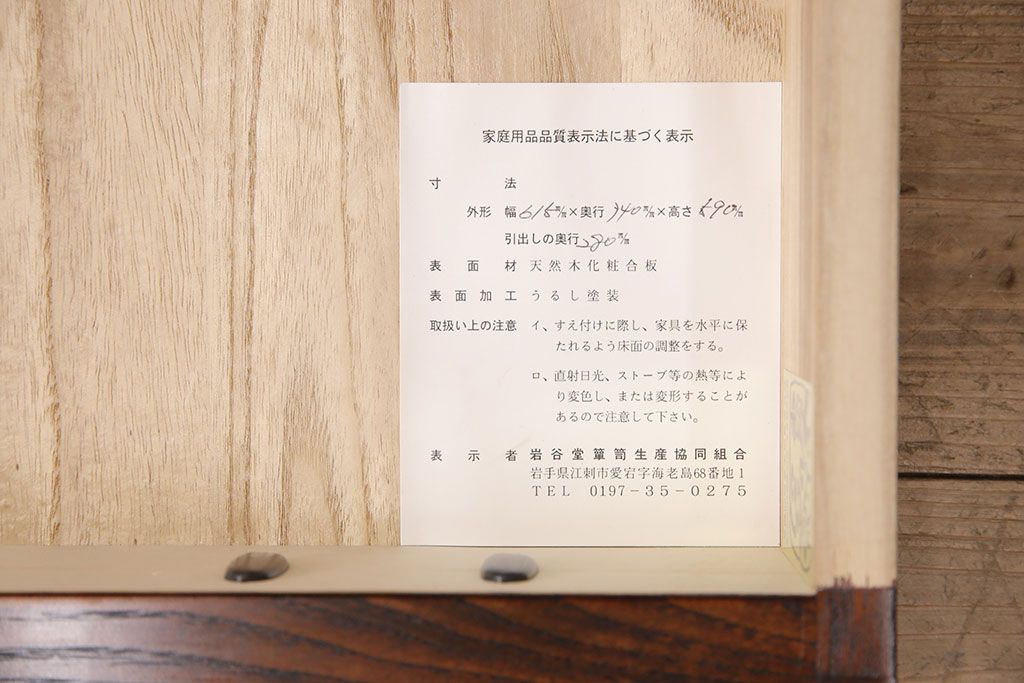 家庭用品品質表示法に基づく表示
寸法
外形 幅615㍉×奥行340㍉×高さ890㍉
引出しの奥行280㍉
表面材 天然木化粧合板
表面加工 うるし塗装
取扱い上の注意 イ、すえ付けに際し、家具を水平に保
たれるよう床面の調整をする。
ロ、直射日光、ストーブ等の熱等によ
り変色し、または変形することが
あるので注意して下さい。
表示者 岩谷堂簞笥生産協同組合
岩手県江刺市愛宕字海老島68番地1
TEL 0197-35-0275